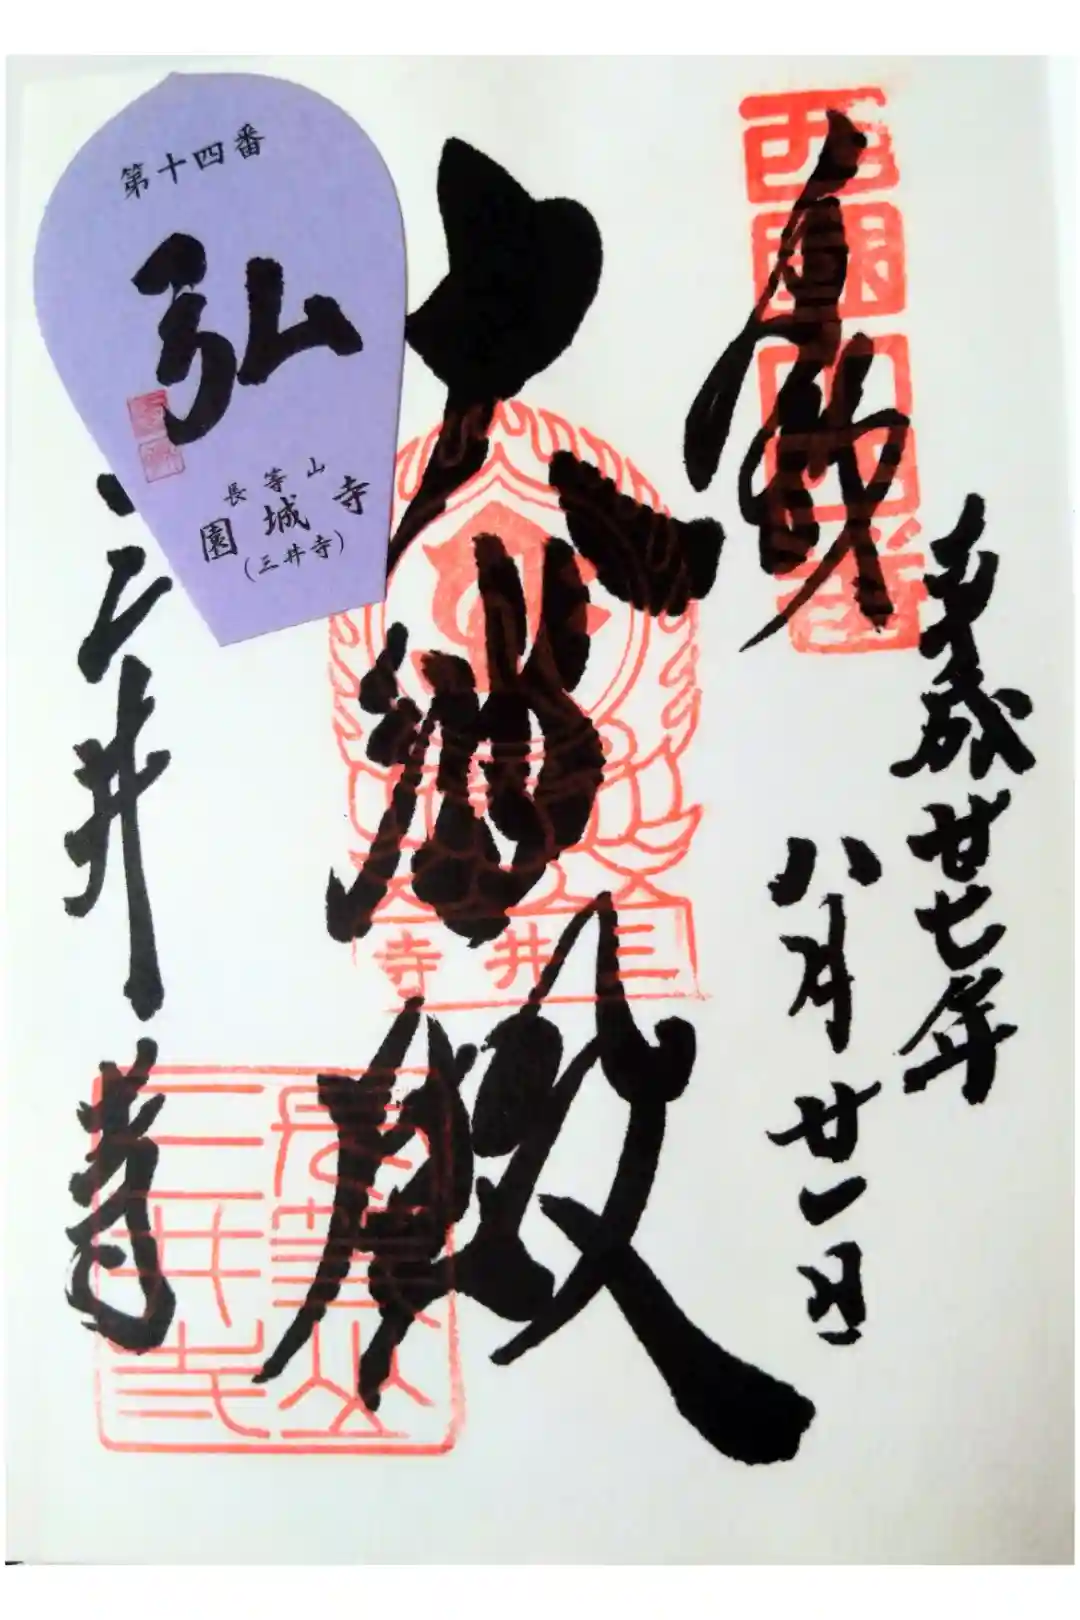 奉拝
西国十四番
平成廿七年
八月廿一日
大悲殿
三井寺
三井寺
長等山
三井寺
第十四番
弘
長等山
園城寺
(三井寺)